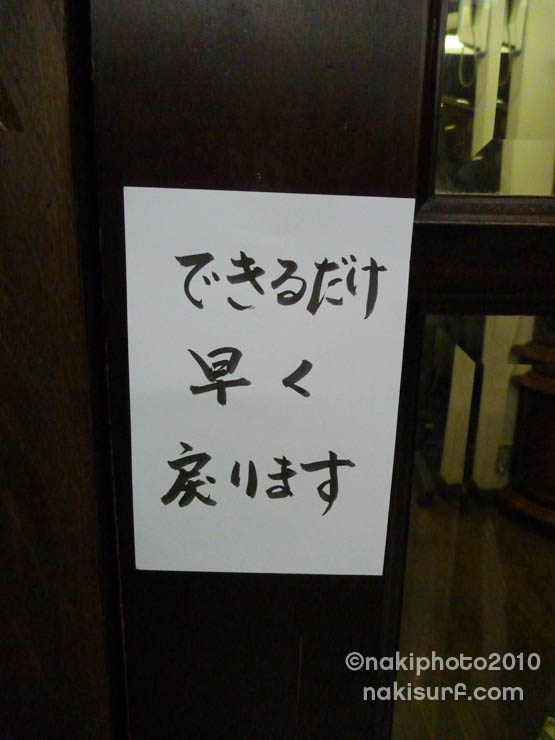 できるだけ
早く
戻ります
©nakiphoto2010
nakisurf.com